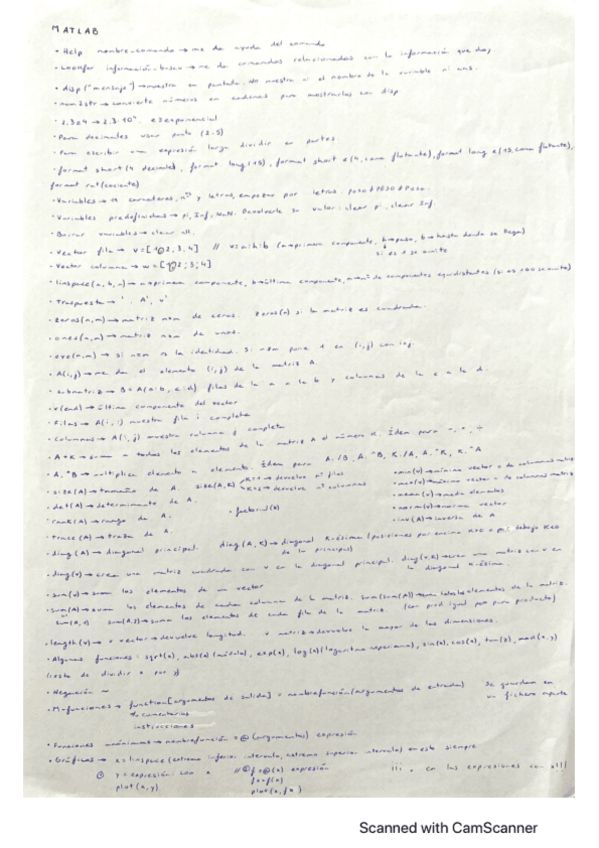 MATLAB
• Help nombre_comando → me da ayuda del comando
• Lookfor información_busco → me da comandos relacionados con la información que doy.
• disp("mensaje") → muestra en pantalla. No muestra ni el nombre de la variable ni ans.
• num2str → convierte números en cadenas para mostrarlos con disp
• 2.3e4 → 2.3·10⁴. e≡exponencial
• Para decimales usar punto (2.5)
• Para escribir una expresión larga dividir en partes.
• format short (4 decimales), format long (15), format short e (4, coma flotante), format long e (15, coma flotante),
format rat (cociente)
• Variables → 19 caracteres, nºs y letras, empezar por letras. peso≠PESO≠Peso.
• Variables predefinidas → pi, Inf, NaN. Devolverle su valor: clear pi, clear Inf.
• Borrar variables → clear all.
• Vector fila → v=[1,2,3,4] // v=a:h:b (a≡primera componente, h≡paso, b≡hasta donde se llega)
si es 1 se omite
• Vector columna → w=[1;2;3;4]
• linspace(a,b,n) → a≡primera componente, b≡última componente, n≡nº de componentes equidistantes (si es 100 se omite)
• Traspuesta → '. A', v'
• zeros(n,m) → matriz nxm de ceros. zeros(n) si la matriz es cuadrada.
• ones(n,m) → matriz nxm de unos.
• eye(n,m) → si n=m es la identidad. Si n≠m pone 1 en (i,j) con i=j.
• A(i,j) → me da el elemento (i,j) de la matriz A.
• submatriz → B=A(a:b, c:d) filas de la a a la b y columnas de la c a la d.
• v(end) → última componente del vector
• Filas → A(i,:) muestra fila i completa
• Columnas → A(:,j) muestra columna j completa
• A+K → suma a todos los elementos de la matriz A el número K. Ídem para -, *, ÷
• A.*B → multiplica elemento a elemento. Ídem para A./B, A.^B, K./A, A.^K, K.^A
• size(A) → tamaño de A. size(A,K) K=1 → devuelve nº filas
K=2 → devuelve nº columnas
• min(v) → mínimo vector o de columnas matriz
• max(v) → máximo vector o de columnas matriz
• det(A) → determinante de A.
• mean(v) → media elementos
• rank(A) → rango de A.
• factorial(k)
• norm(v) → norma vector
• trace(A) → traza de A.
• inv(A) → inversa de A
• diag(A) → diagonal principal. diag(A,K) → diagonal K-ésima (posiciones por encima K>0 o por debajo K<0
de la principal)
• diag(v) → crea una matriz cuadrada con v en la diagonal principal. diag(v,K) → crea una matriz con v en
la diagonal K-ésima
• sum(v) → suma los elementos de un vector
• sum(A) → suma los elementos de cada columna de la matriz. sum(sum(A)) → suma todos los elementos de la matriz.
sum(A,2) → suma los elementos de cada fila de la matriz. (con prod igual pero para producto)
• length(v) → v vector → devuelve longitud. v matriz → devuelve la mayor de las dimensiones.
• Algunas funciones: sqrt(x), abs(x) (módulo), exp(x), log(x) (logaritmo neperiano), sin(x), cos(x), tan(x), mod(x,y)
(resto de dividir x por y)
• Negación ~
• M-funciones → function [argumentos de salida] = nombrefunción (argumentos de entrada) Se guardan en
un fichero aparte
% comentarios
instrucciones
• Funciones anónimas → nombrefunción = @(argumentos) expresión
• Gráficas → x=linspace(extremo inferior intervalo, extremo superior intervalo) en este siempre
① y=expresión con x // ② f=@(x) expresión !!! . en las expresiones con x!!!
plot(x,y) fx=f(x)
plot(x,fx)
Scanned with CamScanner